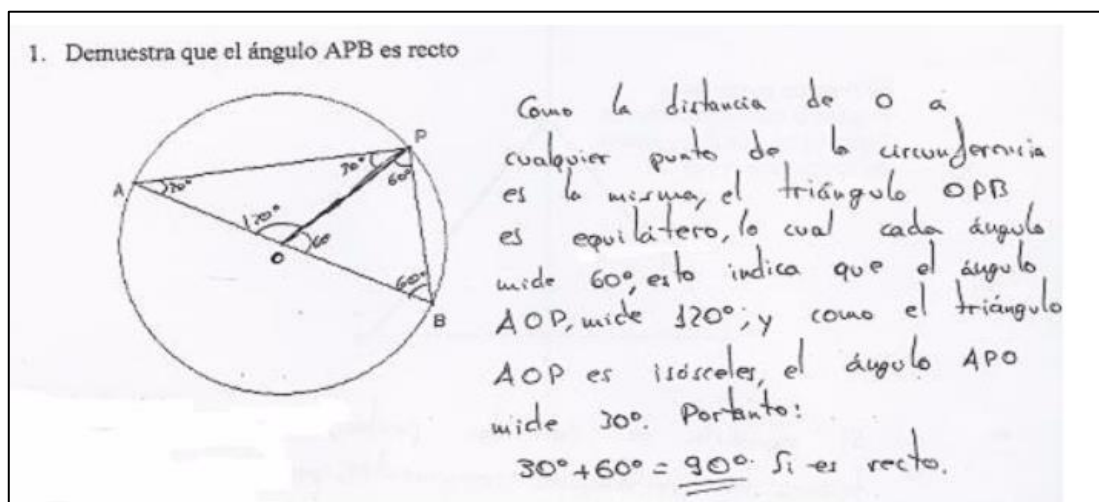 1. Demuestra que el ángulo APB es recto
P
A
30°
30°
60°
120°
60
O
60°
B
Como la distancia de O a
cualquier punto de la circunferencia
es la misma, el triángulo OPB
es equilátero, lo cual cada ángulo
mide 60°, esto indica que el ángulo
AOP, mide 120°; y como el triángulo
AOP es isósceles, el ángulo APO
mide 30°. Portanto:
30° + 60° = 90°. Si es recto.